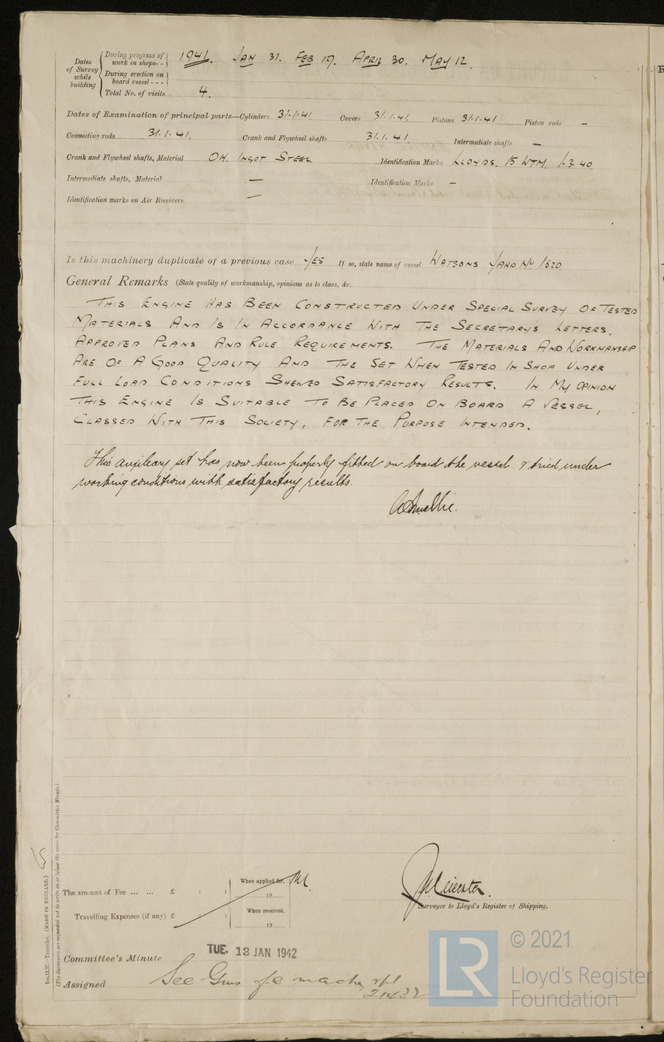 Dates of Survey while building
During progress of work in shops - - 1941. JAN 31. FEB 19. APRIL 30. MAY 12.
During erection on board vessel - - -
Total No. of visits 4.
Dates of Examination of principal parts—Cylinders 31.1.41. Covers 31.1.41. Pistons 31.1.41. Piston rods –
Connecting rods 31.1.41. Crank and Flywheel shafts 31.1.41. Intermediate shafts –
Crank and Flywheel shafts, Material OH. INGOT STEEL Identification Marks LLOYDS.
Intermediate shafts, Material — Identification Marks –
Identification marks on Air Receivers —
Is this machinery duplicate of a previous case YES If so, state name of vessel WATSONS YARD No 1520
General Remarks (State quality of workmanship, opinions as to class, &c.
THIS ENGINE HAS BEEN CONSTRUCTED UNDER SPECIAL SURVEY OF TESTED
MATERIALS AND IS IN ACCORDANCE WITH THE SECRETARY'S LETTERS,
APPROVED PLANS AND RULE REQUIREMENTS. THE MATERIALS AND WORKMANSHIP
ARE OF A GOOD QUALITY AND THE SET WHEN TESTED IN SHOP UNDER
FULL LOAD CONDITIONS SHEWED SATISFACTORY RESULTS. IN MY OPINION
THIS ENGINE IS SUITABLE TO BE PLACED ON BOARD A VESSEL,
CLASSED WITH THIS SOCIETY, FOR THE PURPOSE INTENDED.
This auxiliary set has now been properly fitted on board the vessel & tried under
working conditions with satisfactory results.
The amount of Fee ... ... £ : :
When applied for,
19
Travelling Expenses (if any) £ : :
When received,
19
Surveyor to Lloyd's Register of Shipping.
Committee's Minute TUE. 13 JAN 1942
Assigned See
(MADE IN ENGLAND.)
(The Surveyors are requested not to write on or below the space for Committee Minute.)
LR
© 2021
Lloyd's Register
Foundation